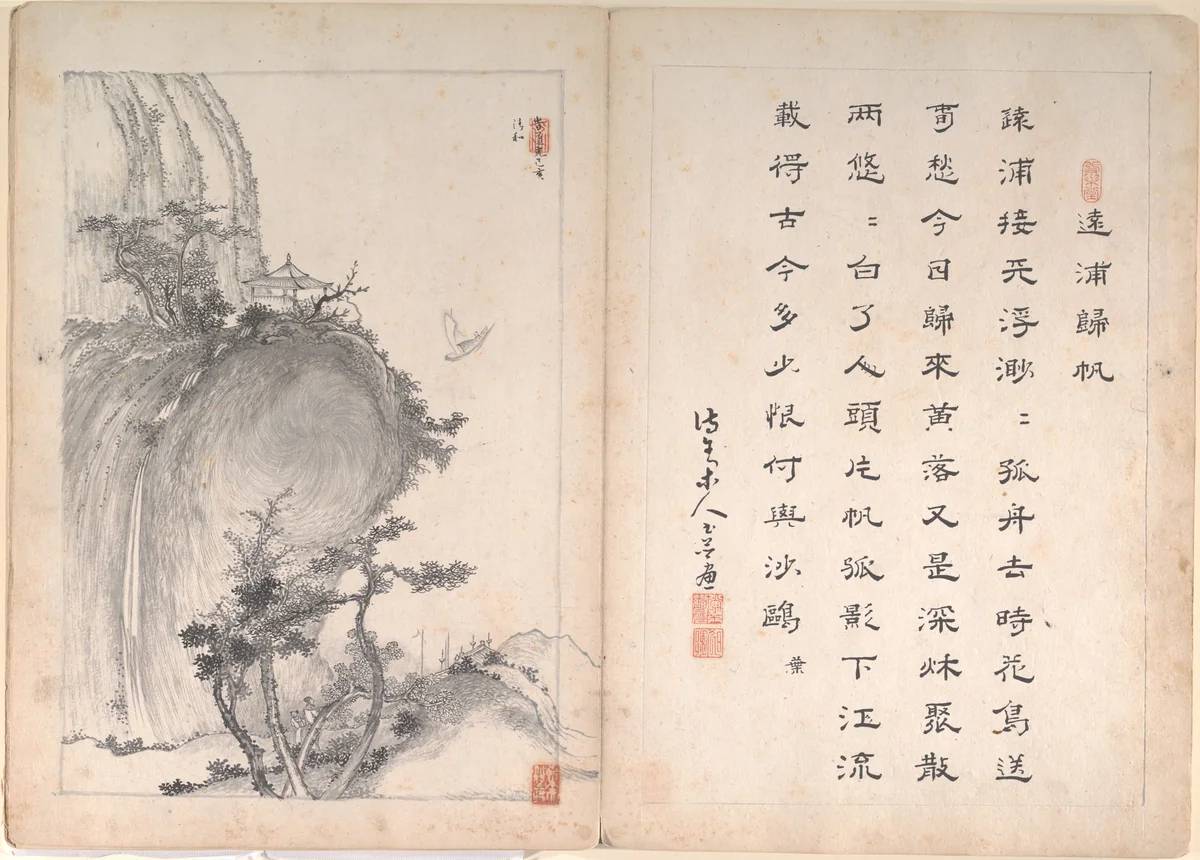 遠浦歸帆
遠浦接天浮渺〻孤舟去時花鳥送
旾愁今日歸來黃落又是深秋聚散
兩悠〻白了人頭片帆孤影下江流
載得古今多少恨付與沙鷗 葉
木人書并畫
峕道光己亥
清和